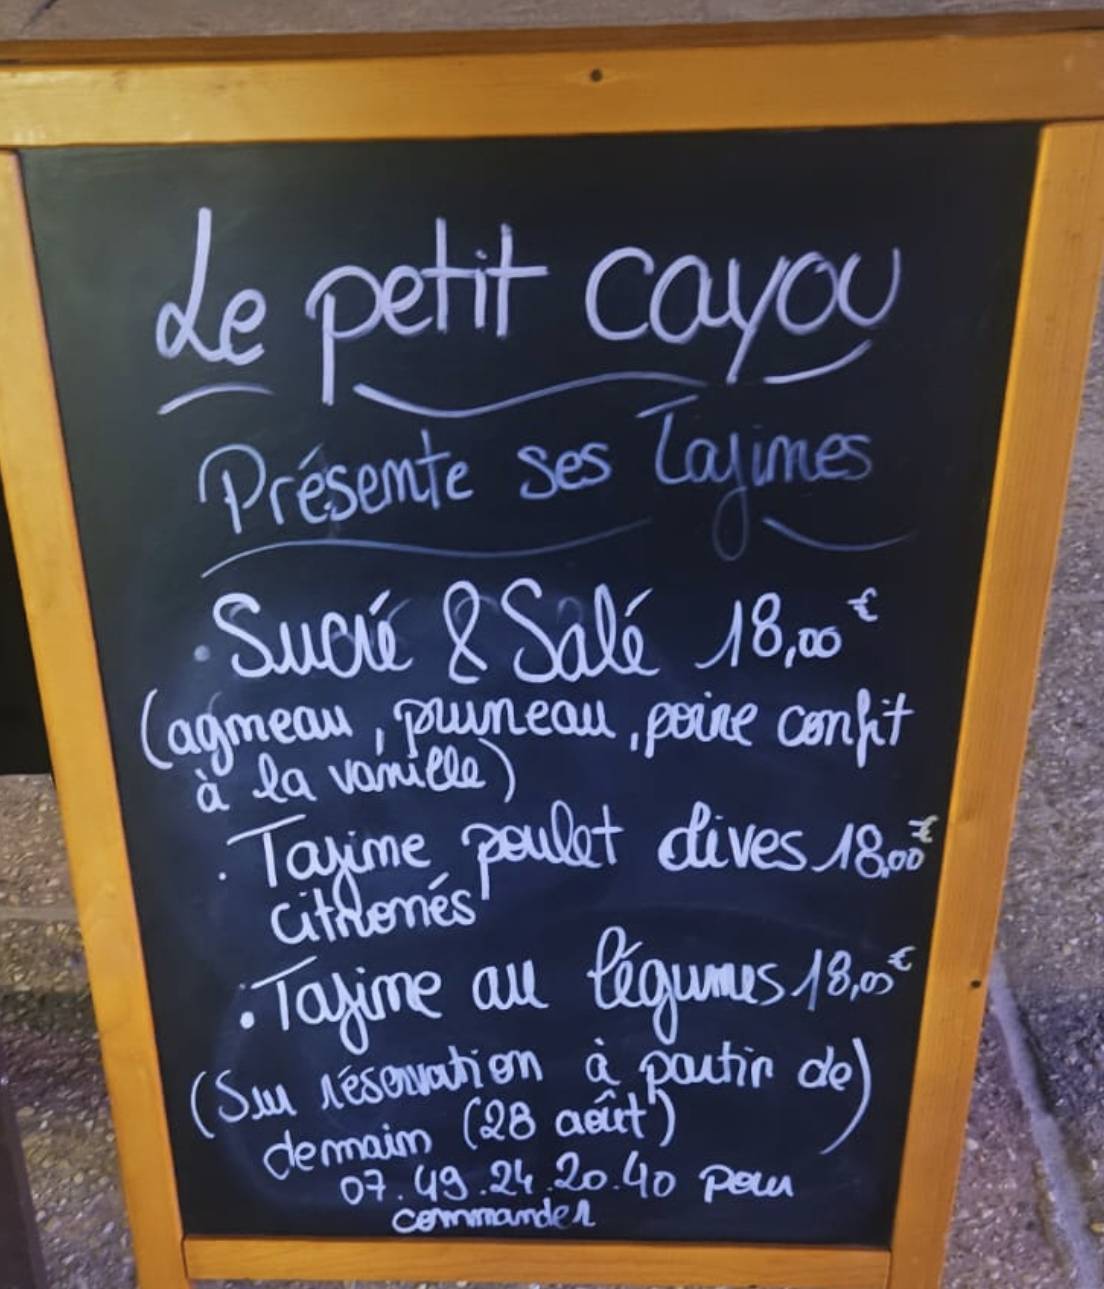 Le petit cayou
Présente ses Tajines
· Sucré & Salé 18,00€
(agneau, pruneau, poire confit
à la vanille)
· Tajine poulet olives 18,00€
citronés
· Tajine au légumes 18,00€
(Sur réservation à partir de)
demain (28 août)
07.49.24.20.40 pour
commander